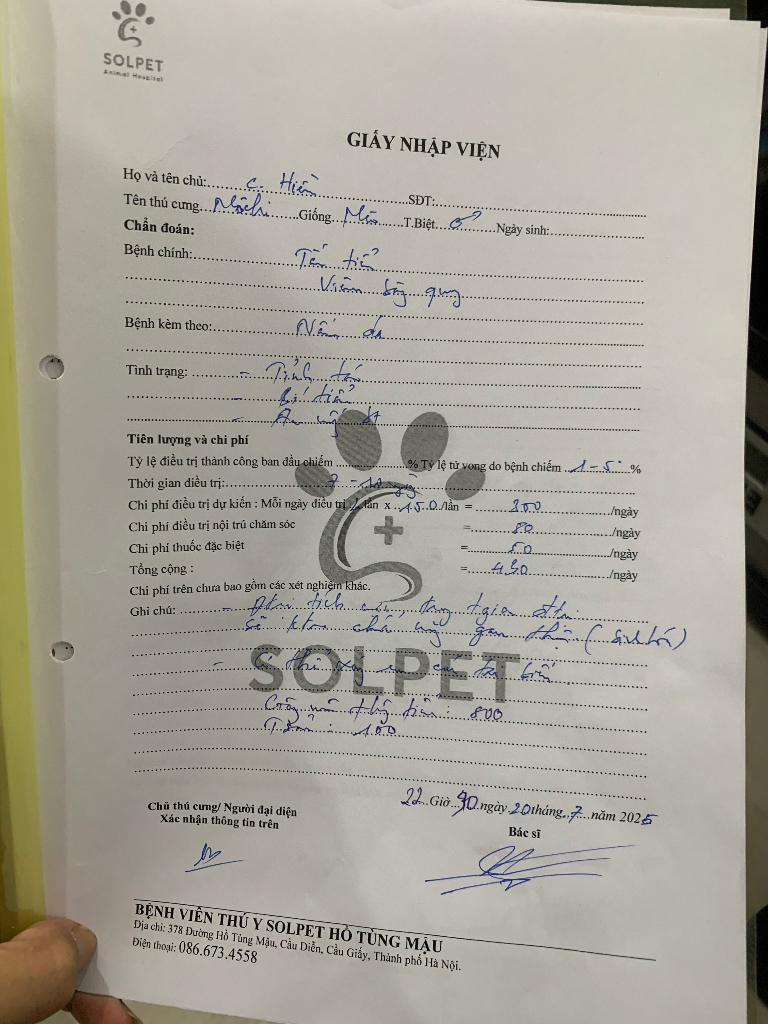 SOLPET
Animal Hospital
GIẤY NHẬP VIỆN
Họ và tên chủ: C. Hiền SĐT:
Tên thú cưng Mochi Giống Mèo T.Biệt ♂ Ngày sinh:
Chẩn đoán:
Bệnh chính: Tắc tiểu
Viêm bàng quang
Bệnh kèm theo: Nấm da
Tình trạng: - Tỉnh táo
- Bí tiểu
- Ăn
Tiên lượng và chi phí
Tỷ lệ điều trị thành công ban đầu chiếm % Tỷ lệ tử vong do bệnh chiếm 1-5 %
Thời gian điều trị: 7 - 10 ngày
Chi phí điều trị dự kiến : Mỗi ngày điều trị 2 lần x 150/lần = 300 /ngày
Chi phí điều trị nội trú chăm sóc = 80 /ngày
Chi phí thuốc đặc biệt = 50 /ngày
Tổng cộng : = 430 /ngày
Chi phí trên chưa bao gồm các xét nghiệm khác.
Ghi chú: -
gan thận (sinh hóa)
- Có thể
SOLPET
thông tiểu : 800
100
22 Giờ 30 ngày 20 tháng 7 năm 2025
Chủ thú cưng/ Người đại diện
Xác nhận thông tin trên
Bác sĩ
BỆNH VIỆN THÚ Y SOLPET HỒ TÙNG MẬU
Địa chỉ: 378 Đường Hồ Tùng Mậu, Cầu Diễn, Cầu Giấy, Thành phố Hà Nội.
Điện thoại: 086.673.4558